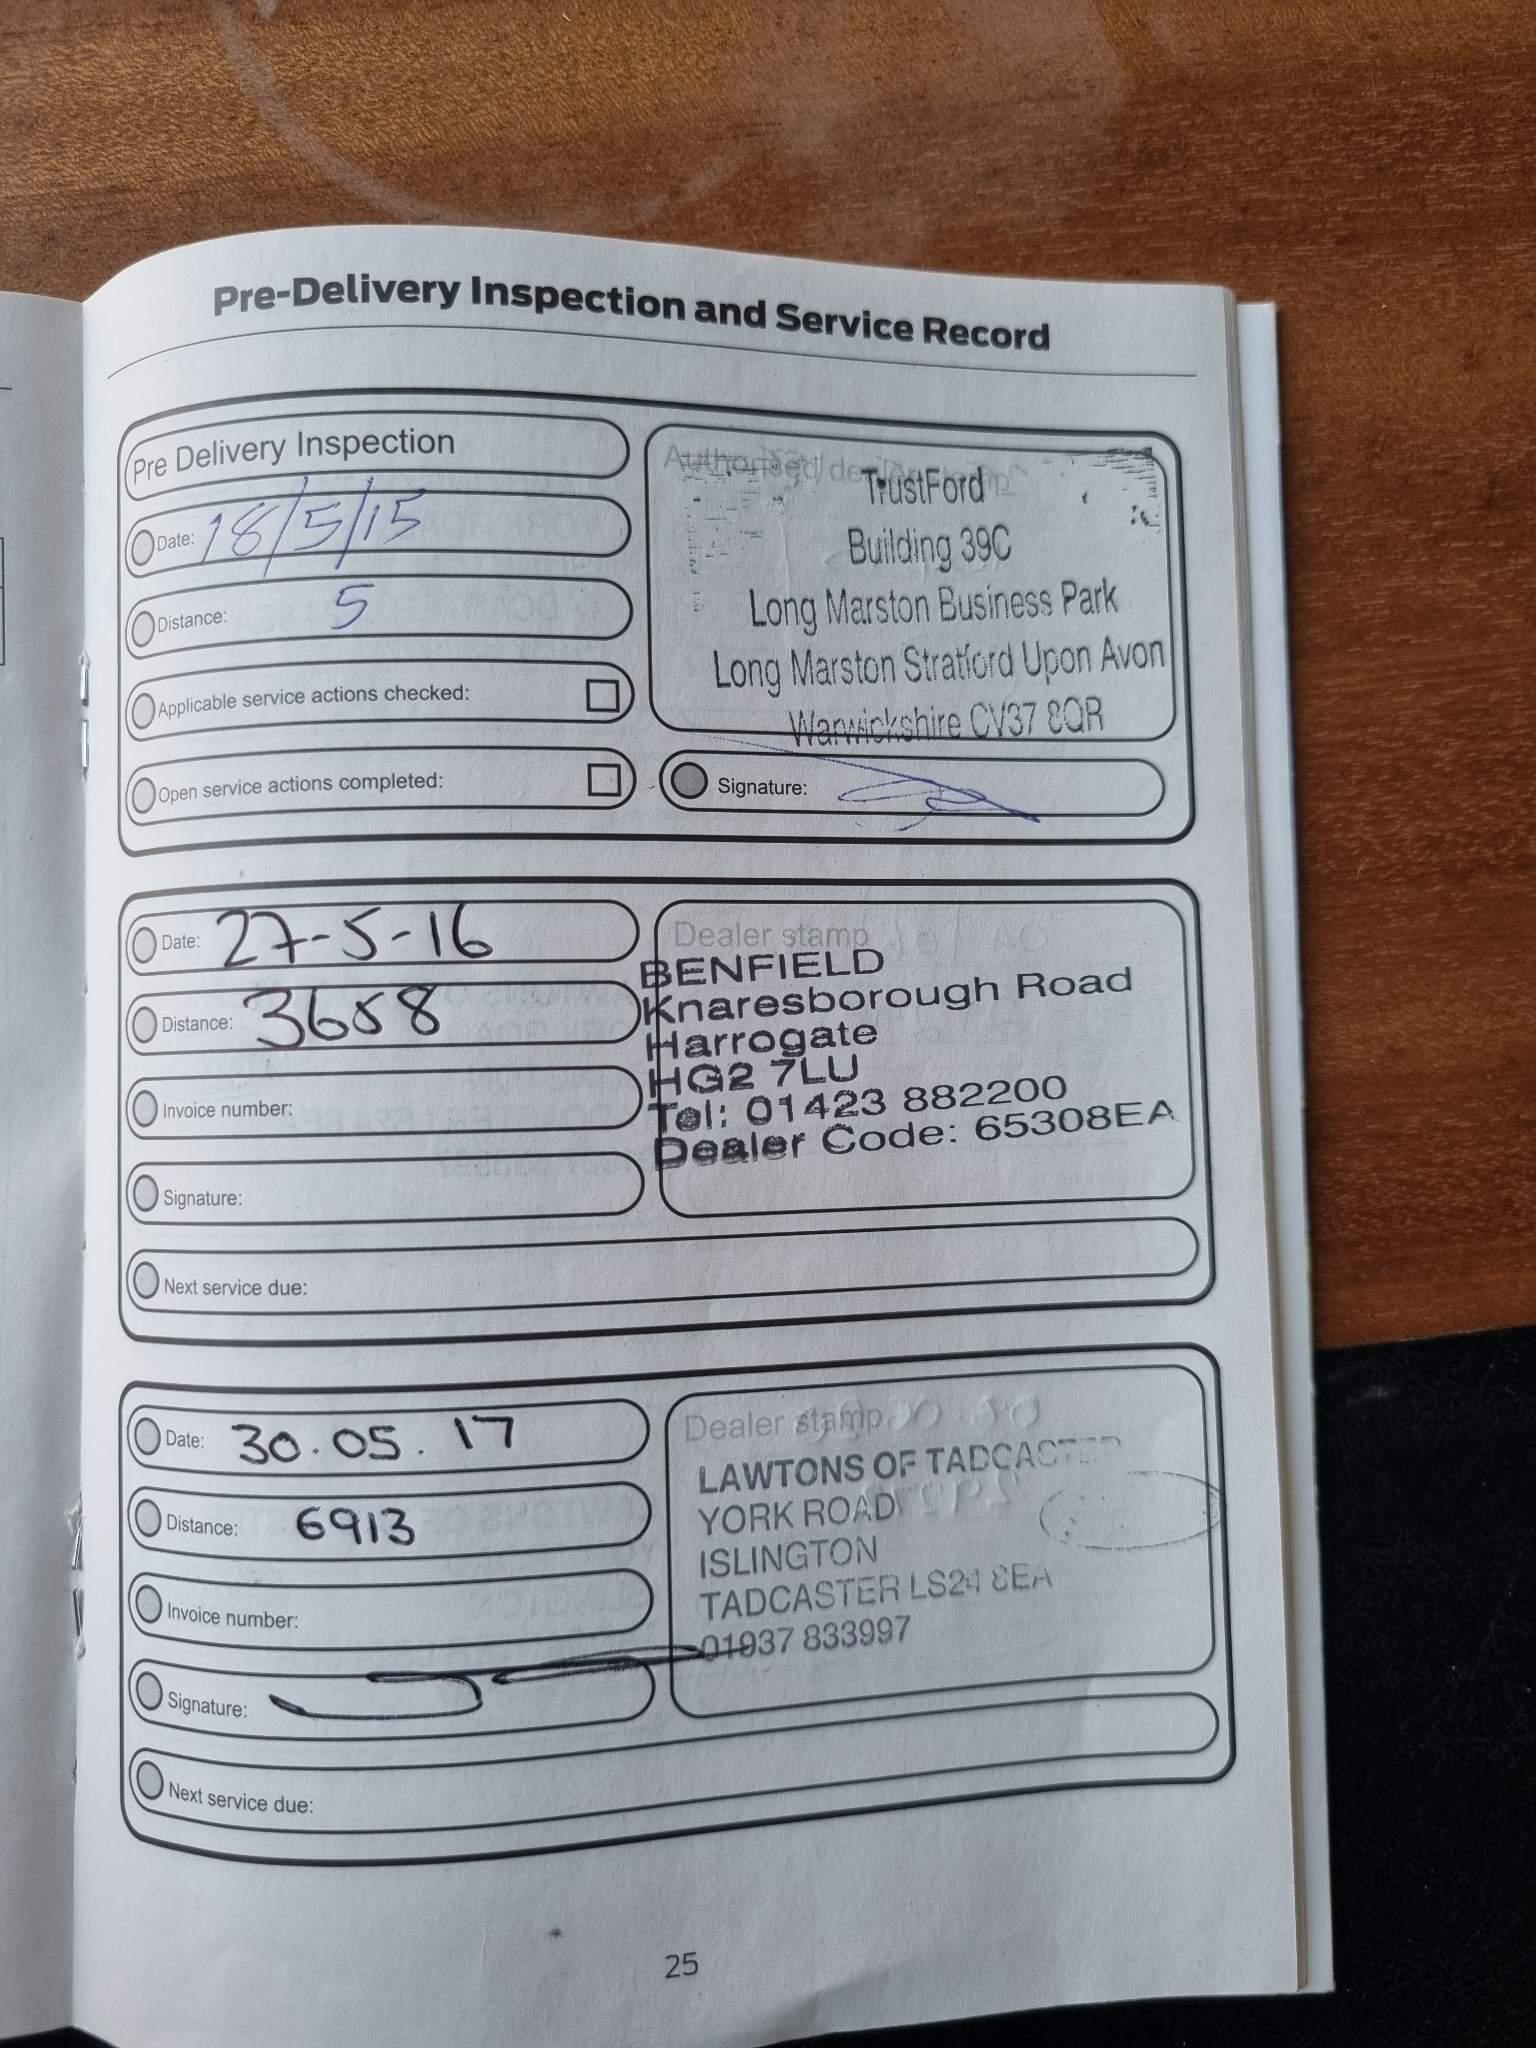 Pre-Delivery Inspection and Service Record
Pre Delivery Inspection
Date: 18/5/15
Distance: 5
Applicable service actions checked:
Open service actions completed:
Authorised dealer stamp
TrustFord
Building 39C
Long Marston Business Park
Long Marston Stratford Upon Avon
Warwickshire CV37 8QR
Signature:
Date: 27-5-16
Distance: 3658
Invoice number:
Signature:
Next service due:
Dealer stamp
BENFIELD
Knaresborough Road
Harrogate
HG2 7LU
Tel: 01423 882200
Dealer Code: 65308EA
Date: 30.05.17
Distance: 6913
Invoice number:
Signature:
Next service due:
Dealer stamp
LAWTONS OF TADCASTER
YORK ROAD
ISLINGTON
TADCASTER LS24 8EA
01937 833997
25